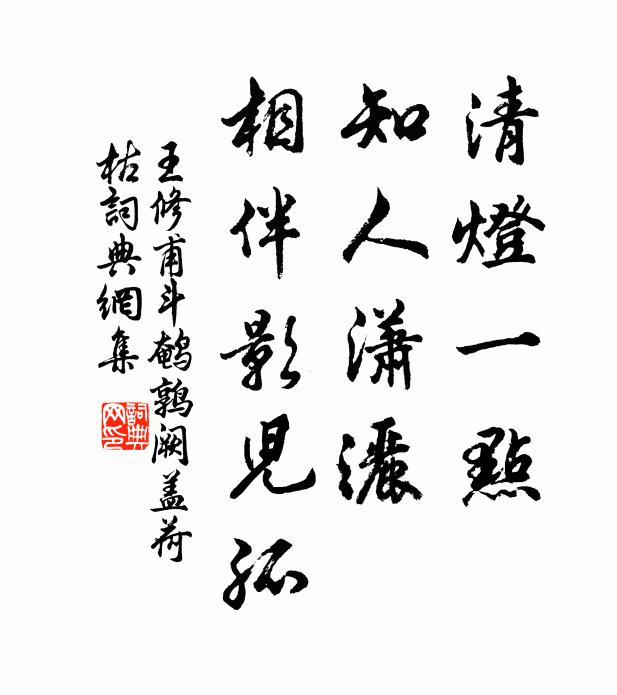 清燈一點
知人瀟灑
相伴影兒孤
王修甫斗鵪鶉闕蓋荷
枯詞典網集
詞典网印